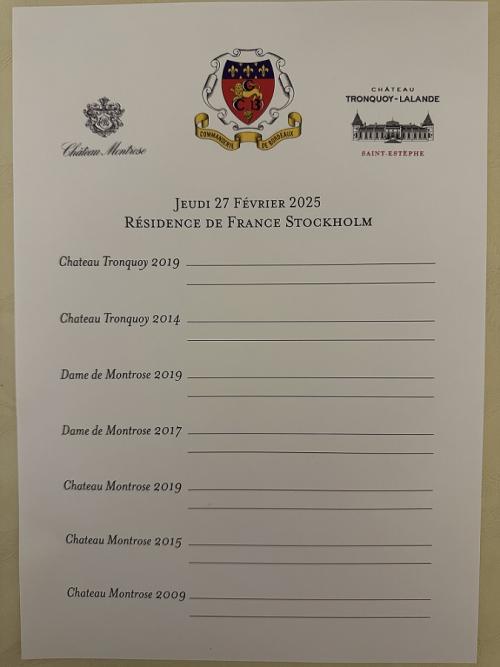 Château Montrose
C
C B
COMMANDERIE DE BORDEAUX
CHÂTEAU
TRONQUOY-LALANDE
SAINT-ESTÈPHE
JEUDI 27 FÉVRIER 2025
RÉSIDENCE DE FRANCE STOCKHOLM
Chateau Tronquoy 2019
Chateau Tronquoy 2014
Dame de Montrose 2019
Dame de Montrose 2017
Chateau Montrose 2019
Chateau Montrose 2015
Chateau Montrose 2009